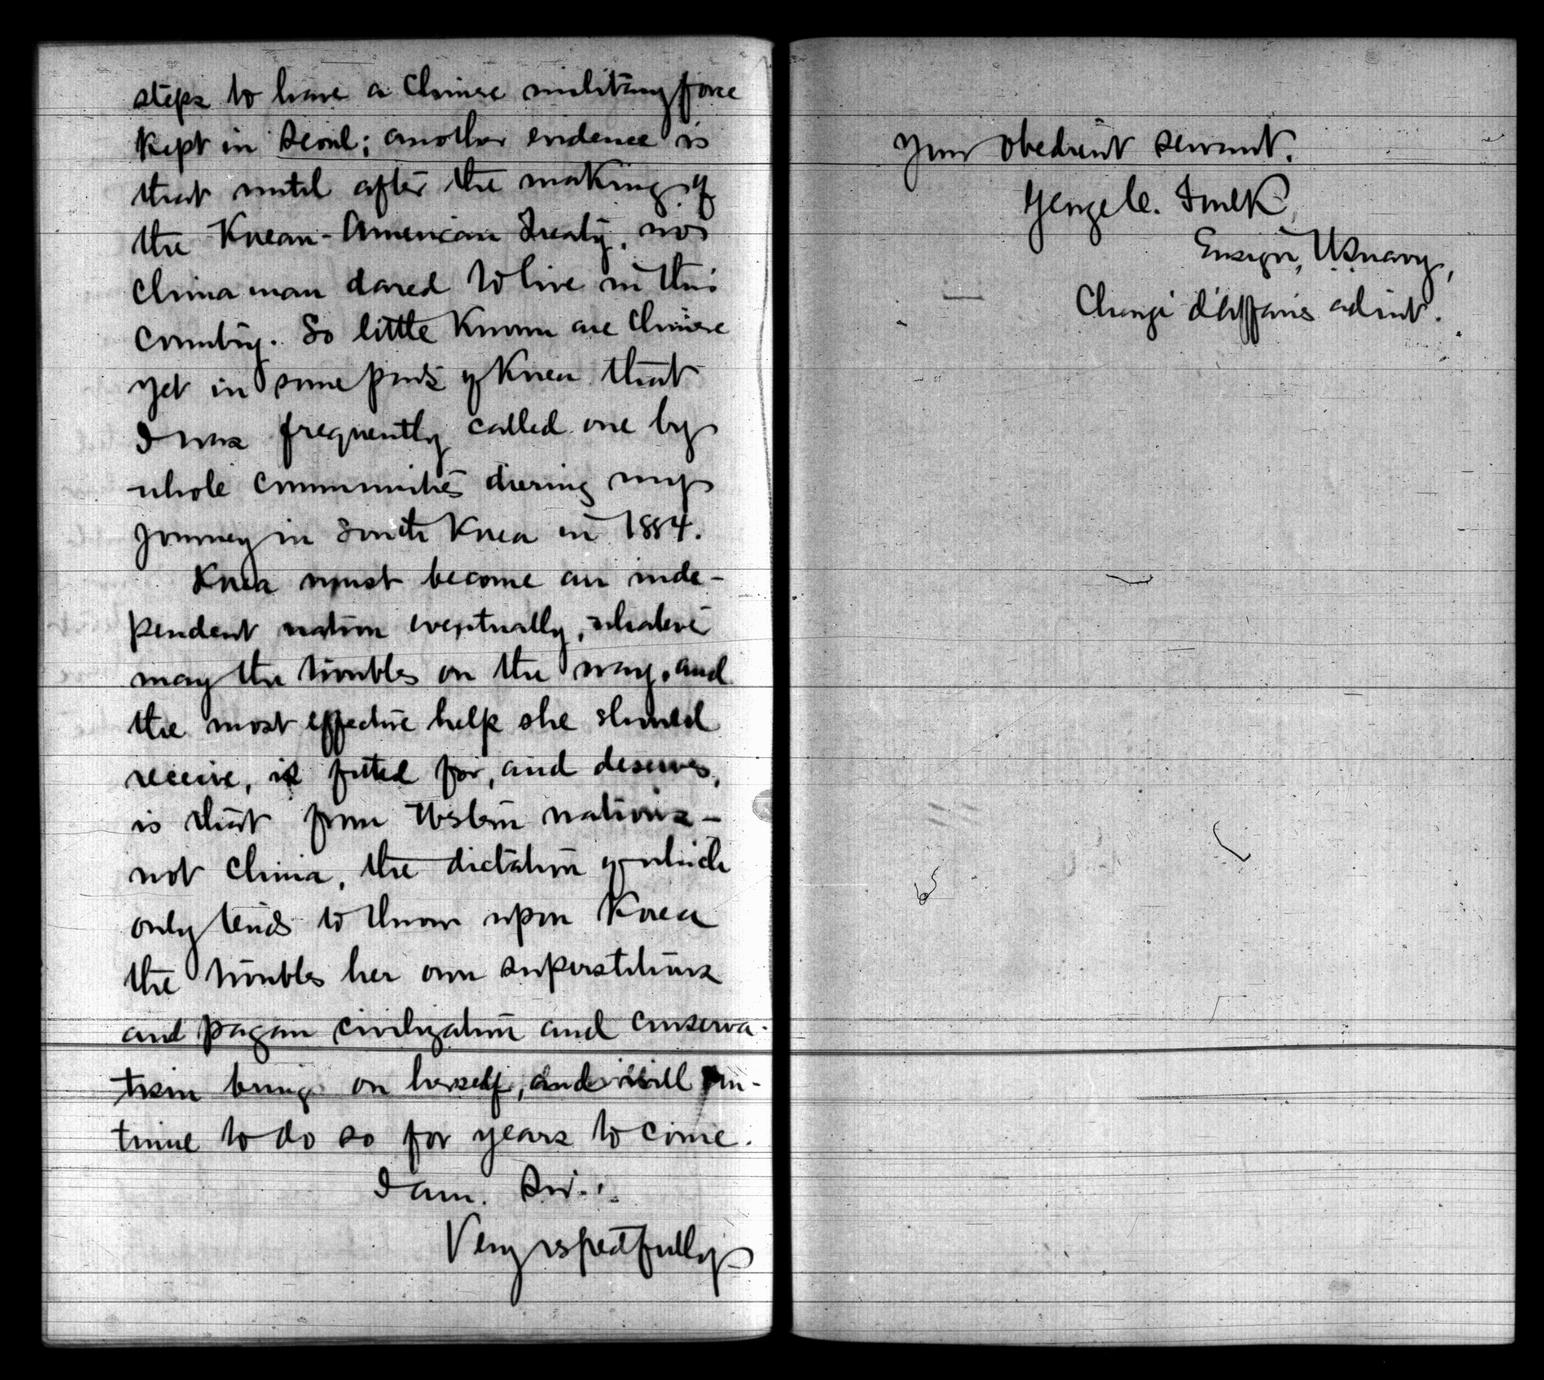 steps to have a Chinese military force
kept in Seoul; another evidence is
that until after the making of
the Korean-American Treaty, no
China man dared to live in this
Country. So little known are Chinese
yet in some parts of Korea that
I was frequently called one by
whole communities during my
journey in South Korea in 1884.
Korea must become an inde-
pendent nation eventually, whatever
may the troubles on the way, and
the most effective help she should
receive, is fitted for, and deserves,
is that from Western nations -
not China, the dictation of which
only tends to throw upon Korea
the troubles her own superstitions
and pagan civilization and conserva-
tism bring on herself, and will con-
tinue to do so for years to come.
I am. Sir.
Very respectfully
Your obedient servant.
George C. Foulk,
Ensign, U.S. Navy,
Chargé d'Affaires ad int.